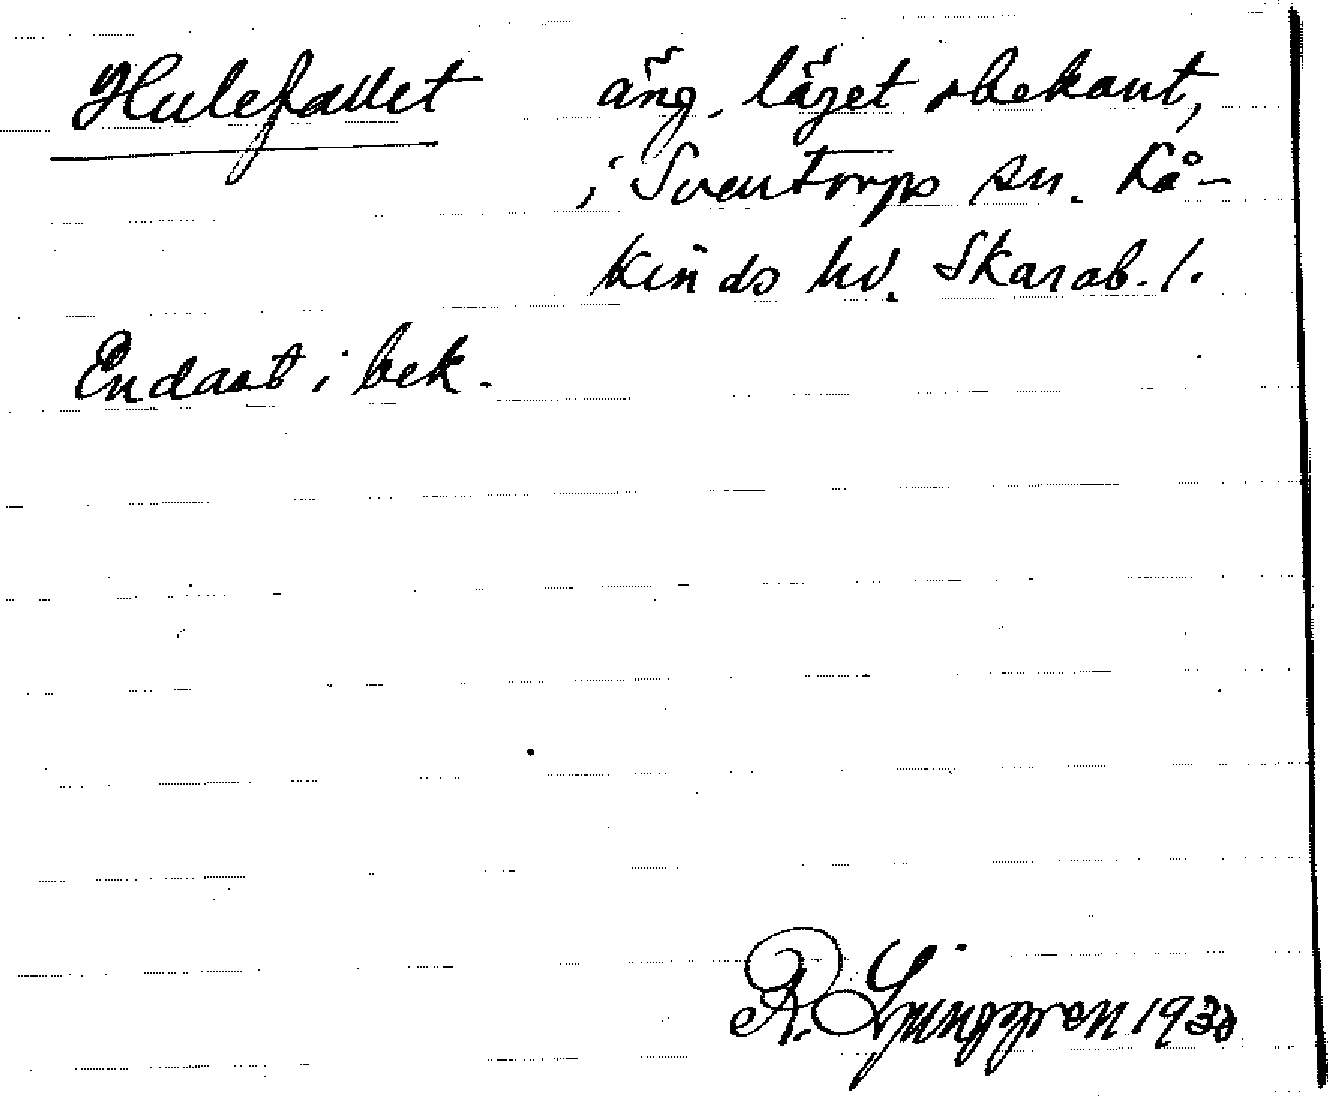 Hulefallet äng, läget obekant,
i Sventorps sn. Kå-
kinds hd. Skarab. l.
Endast i bek.
R. Ljunggren 1930